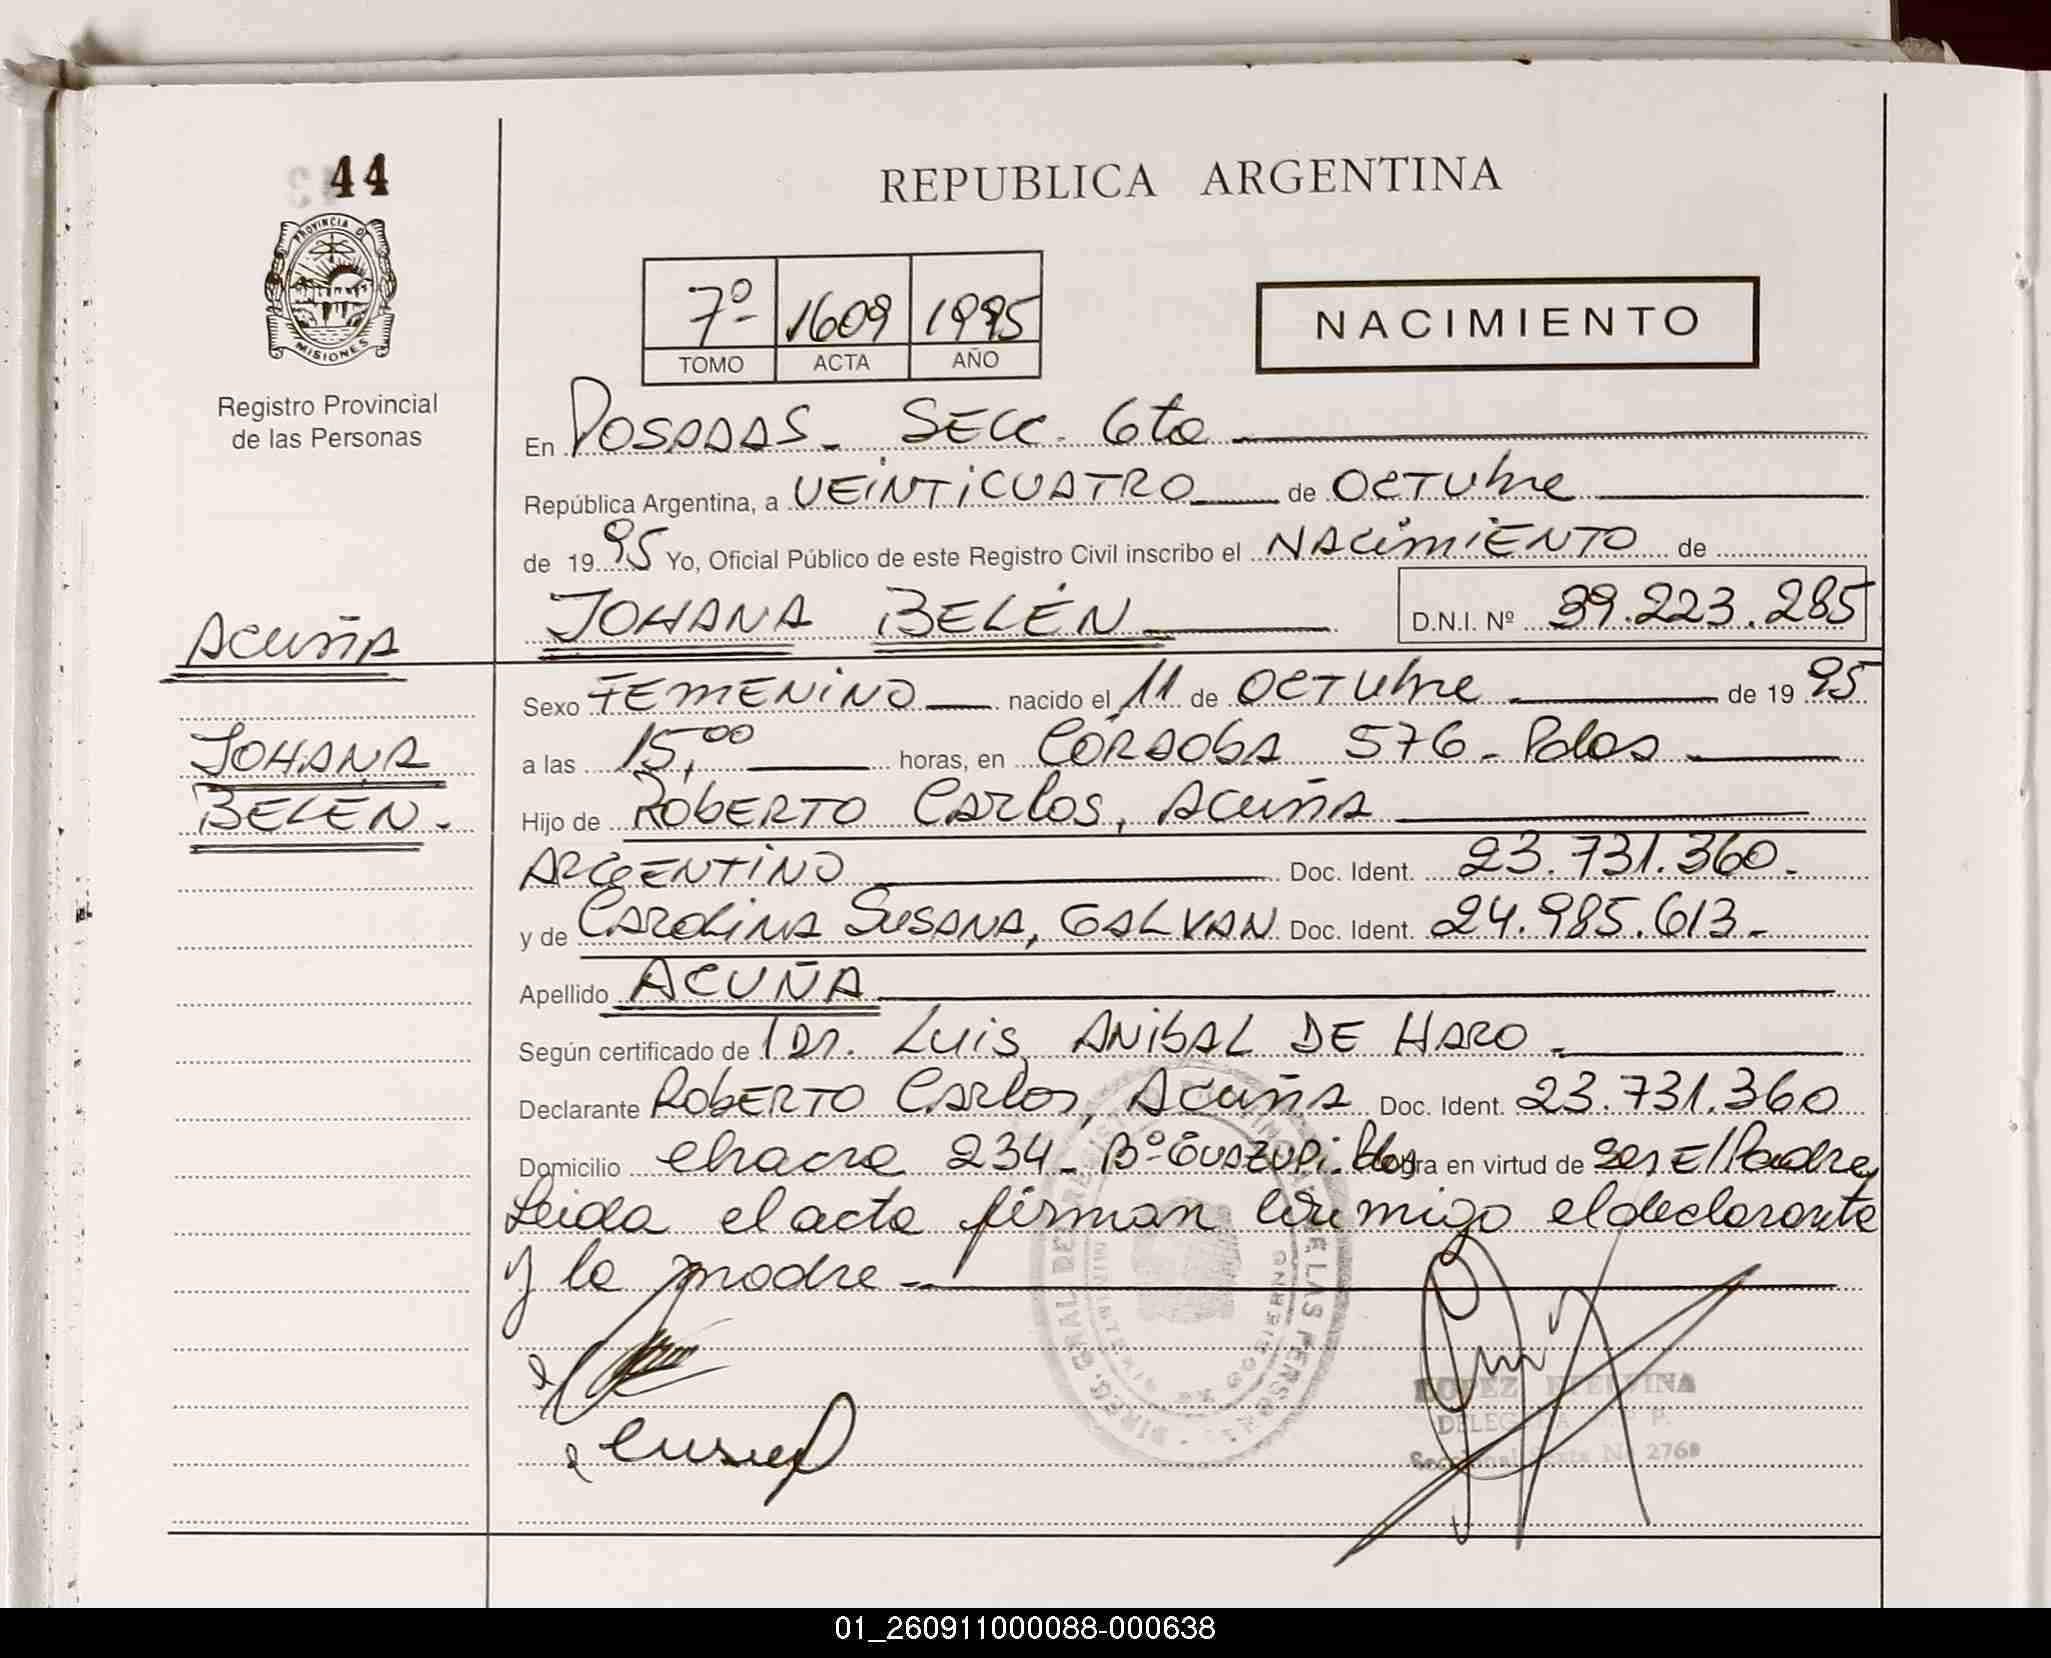 44
REPUBLICA ARGENTINA
PROVINCIA D
MISIONES
7º 1609 1995
TOMO ACTA AÑO
NACIMIENTO
Registro Provincial
de las Personas
En POSADAS - SECC. 6ta
República Argentina, a VEINTICUATRO de OCTUbre
de 1995 Yo, Oficial Público de este Registro Civil inscribo el NACIMIENTO de
JOHANA BELÉN D.N.I. Nº 39.223.285
ACUÑA
JOHANA
BELÉN.
Sexo FEMENINO nacido el 11 de OCTUbre de 1995
a las 15,00 horas, en CÓRDOBA 576 - Pdas
Hijo de ROBERTO CARLOS, ACUÑA
ARGENTINO Doc. Ident. 23.731.360.-
y de CAROLINA SUSANA, GALVAN Doc. Ident. 24.985.613.-
Apellido ACUÑA
Según certificado de Dr. LUIS ANIBAL DE HARO.
Declarante ROBERTO CARLOS, ACUÑA Doc. Ident. 23.731.360
Domicilio chacra 234 - Bº GUAZUPI. Pdas en virtud de ser El Padre,
Leida el acta firman conmigo el declarante
y la madre -
DIREC. GRAL DE REGISTRO PROVINCIAL DE LAS PERSONAS
MINISTERIO DE GOBIERNO
LOPEZ ETELVINA
DELEGADA
Seccional Sexta Nº 2760
01_260911000088-000638